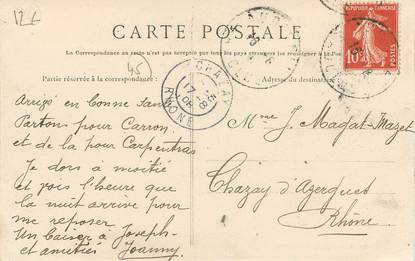 12 £
CARTE POSTALE
La Correspondance au recto n'est pas acceptée par tous les pays étrangers (se renseigner à la Poste)
Partie réservée à la correspondance
Adresse du destinataire
45
CHAZAY
RHÔNE
REPUBLIQUE FRANÇAISE
10
Arrivé en bonne
Partons pour Carron
et de la pour Carpentras
Je dors à moitié
et vois l'heure que
la nuit arrive pour
me reposer
Un baiser à Joseph
et amitiés Joanny
Mme J. Magat-Mazet
Chazay d'Azergues
Rhône